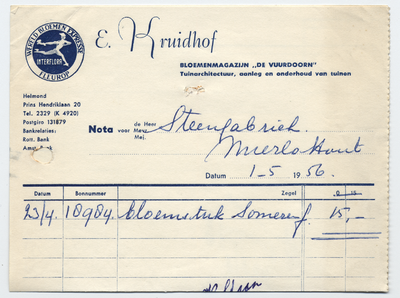 WERELD BLOEMEN EXPRESSE
INTERFLORA
FLEUROP
E. Kruidhof
BLOEMENMAGAZIJN „DE VUURDOORN"
Tuinarchitectuur, aanleg en onderhoud van tuinen
Helmond
Prins Hendriklaan 20
Tel. 2329 (K 4920)
Postgiro 131879
Bankrelaties:
Rott. Bank
Amst. Bank
Nota voor de Heer Mevr. Mej. Steenfabriek
Mierlo Hout
Datum 1-5 1956.
Datum Bonnummer Zegel
23/4. 18984. bloemstuk Someren f. 15,-